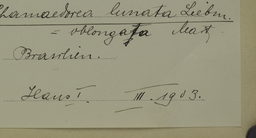 Chamaedorea lunata Liebm.
= oblongata Mart.
Brasilien.
Haus I. III. 1903.